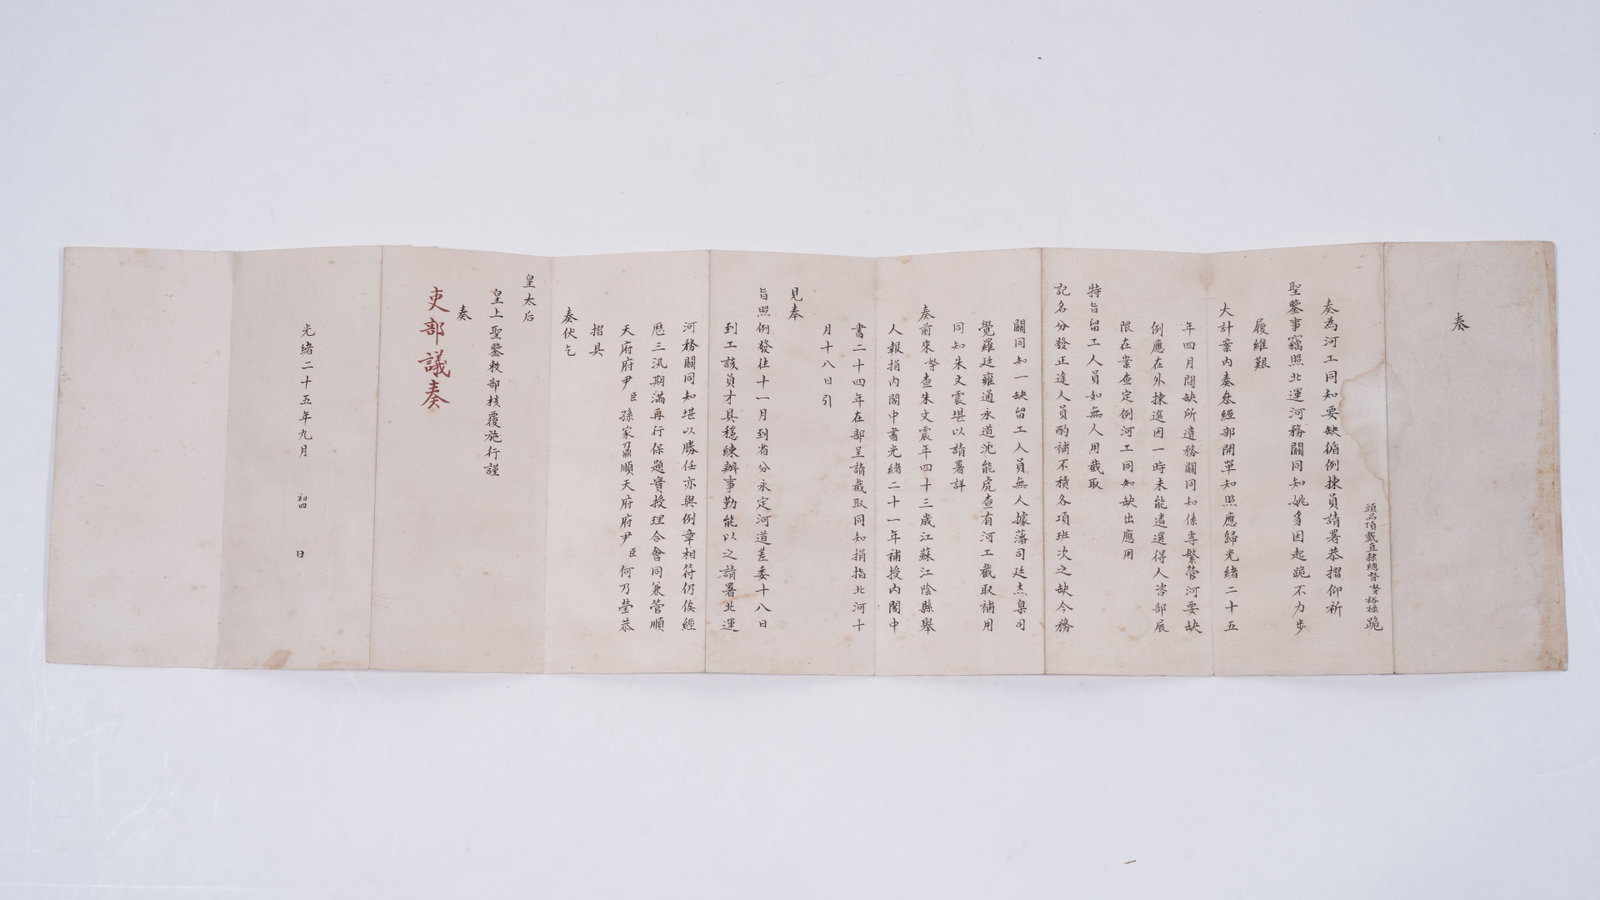 奏
頭品頂戴直隸總督奴才裕祿跪
奏為河工同知要缺循例揀員請署恭摺仰祈
聖鑒事竊照北運河務關同知姚 因起跪不力步
履維艱
大計案內奏叅經部開單知照應歸光緒二十五
年四月開缺所遺務關同知係專繁管河要缺
例應在外揀選因一時未能遴選得人咨部展
限在案查定例河工同知缺出應用
特旨留工人員如無人用截取
記名分發正途人員酌補不積各項班次之缺今務
關同知一缺留工人員無人據藩司廷杰臬司
覺羅廷雍通永道沈能虎查有河工截取補用
同知朱文震堪以請署詳
奏前來奴才查朱文震年四十三歲江蘇江陰縣舉
人報捐內閣中書光緒二十一年補授內閣中
書二十四年在部呈請截取同知捐指北河十
月十八日引
見奉
旨照例發往十一月到省分永定河道差委十八日
到工該員才具穩練辦事勤能以之請署北運
河務關同知堪以勝任亦與例章相符仍俟經
歷三汛期滿再行保題實授理合會同兼管順
天府府尹臣孫家鼐順天府府尹臣何乃瑩恭
摺具
奏伏乞
皇太后
皇上聖鑒敕部核覆施行謹
奏
吏部議奏
光緒二十五年九月 初四 日